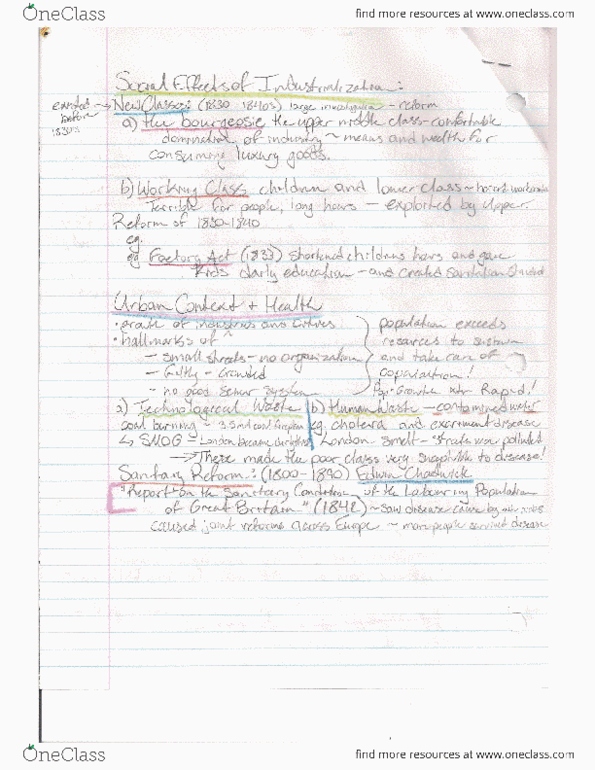 OneClass
find more resources at www.oneclass.com
Social Effects of Industrialization:
existed → New Classes: (1830-1840s) large - reform
before
1830s
a) the bourgeosie the upper middle class - comfortable
domination of industry ~ means and wealth for
consuming luxury goods.
b) Working Class children and lower class ~
Terrible for people, long hours - exploited by upper.
Reform of 1830-1840
eg.
eg Factory Act (1833) shortened childrens hours and gave
kids daily education - and created Sanitation
Urban Context + Health
• growth of industries and cities
• hallmarks of ^
- small streets - no organization
- Guilty - Crowded
- no good sewer system
population exceeds
resources to sustain
and take care of
population!
Pop. Growth Rapid!
a) Technological Waste
coal burning ~
↳ SMOG - London became
b) Human Waste - contamined water
eg. cholera and excrement disease
London smelt - streets were polluted
→ These made the poor class very to disease!
Sanitary Reform: (1800-1890) Edwin Chadwick
"Report on the Sanitary Conditions of the Labouring Population
of Great Britain" (1842) ~ saw disease cause by
caused joint reforms across Europe ~ more people survived disease
OneClass
find more resources at www.oneclass.com